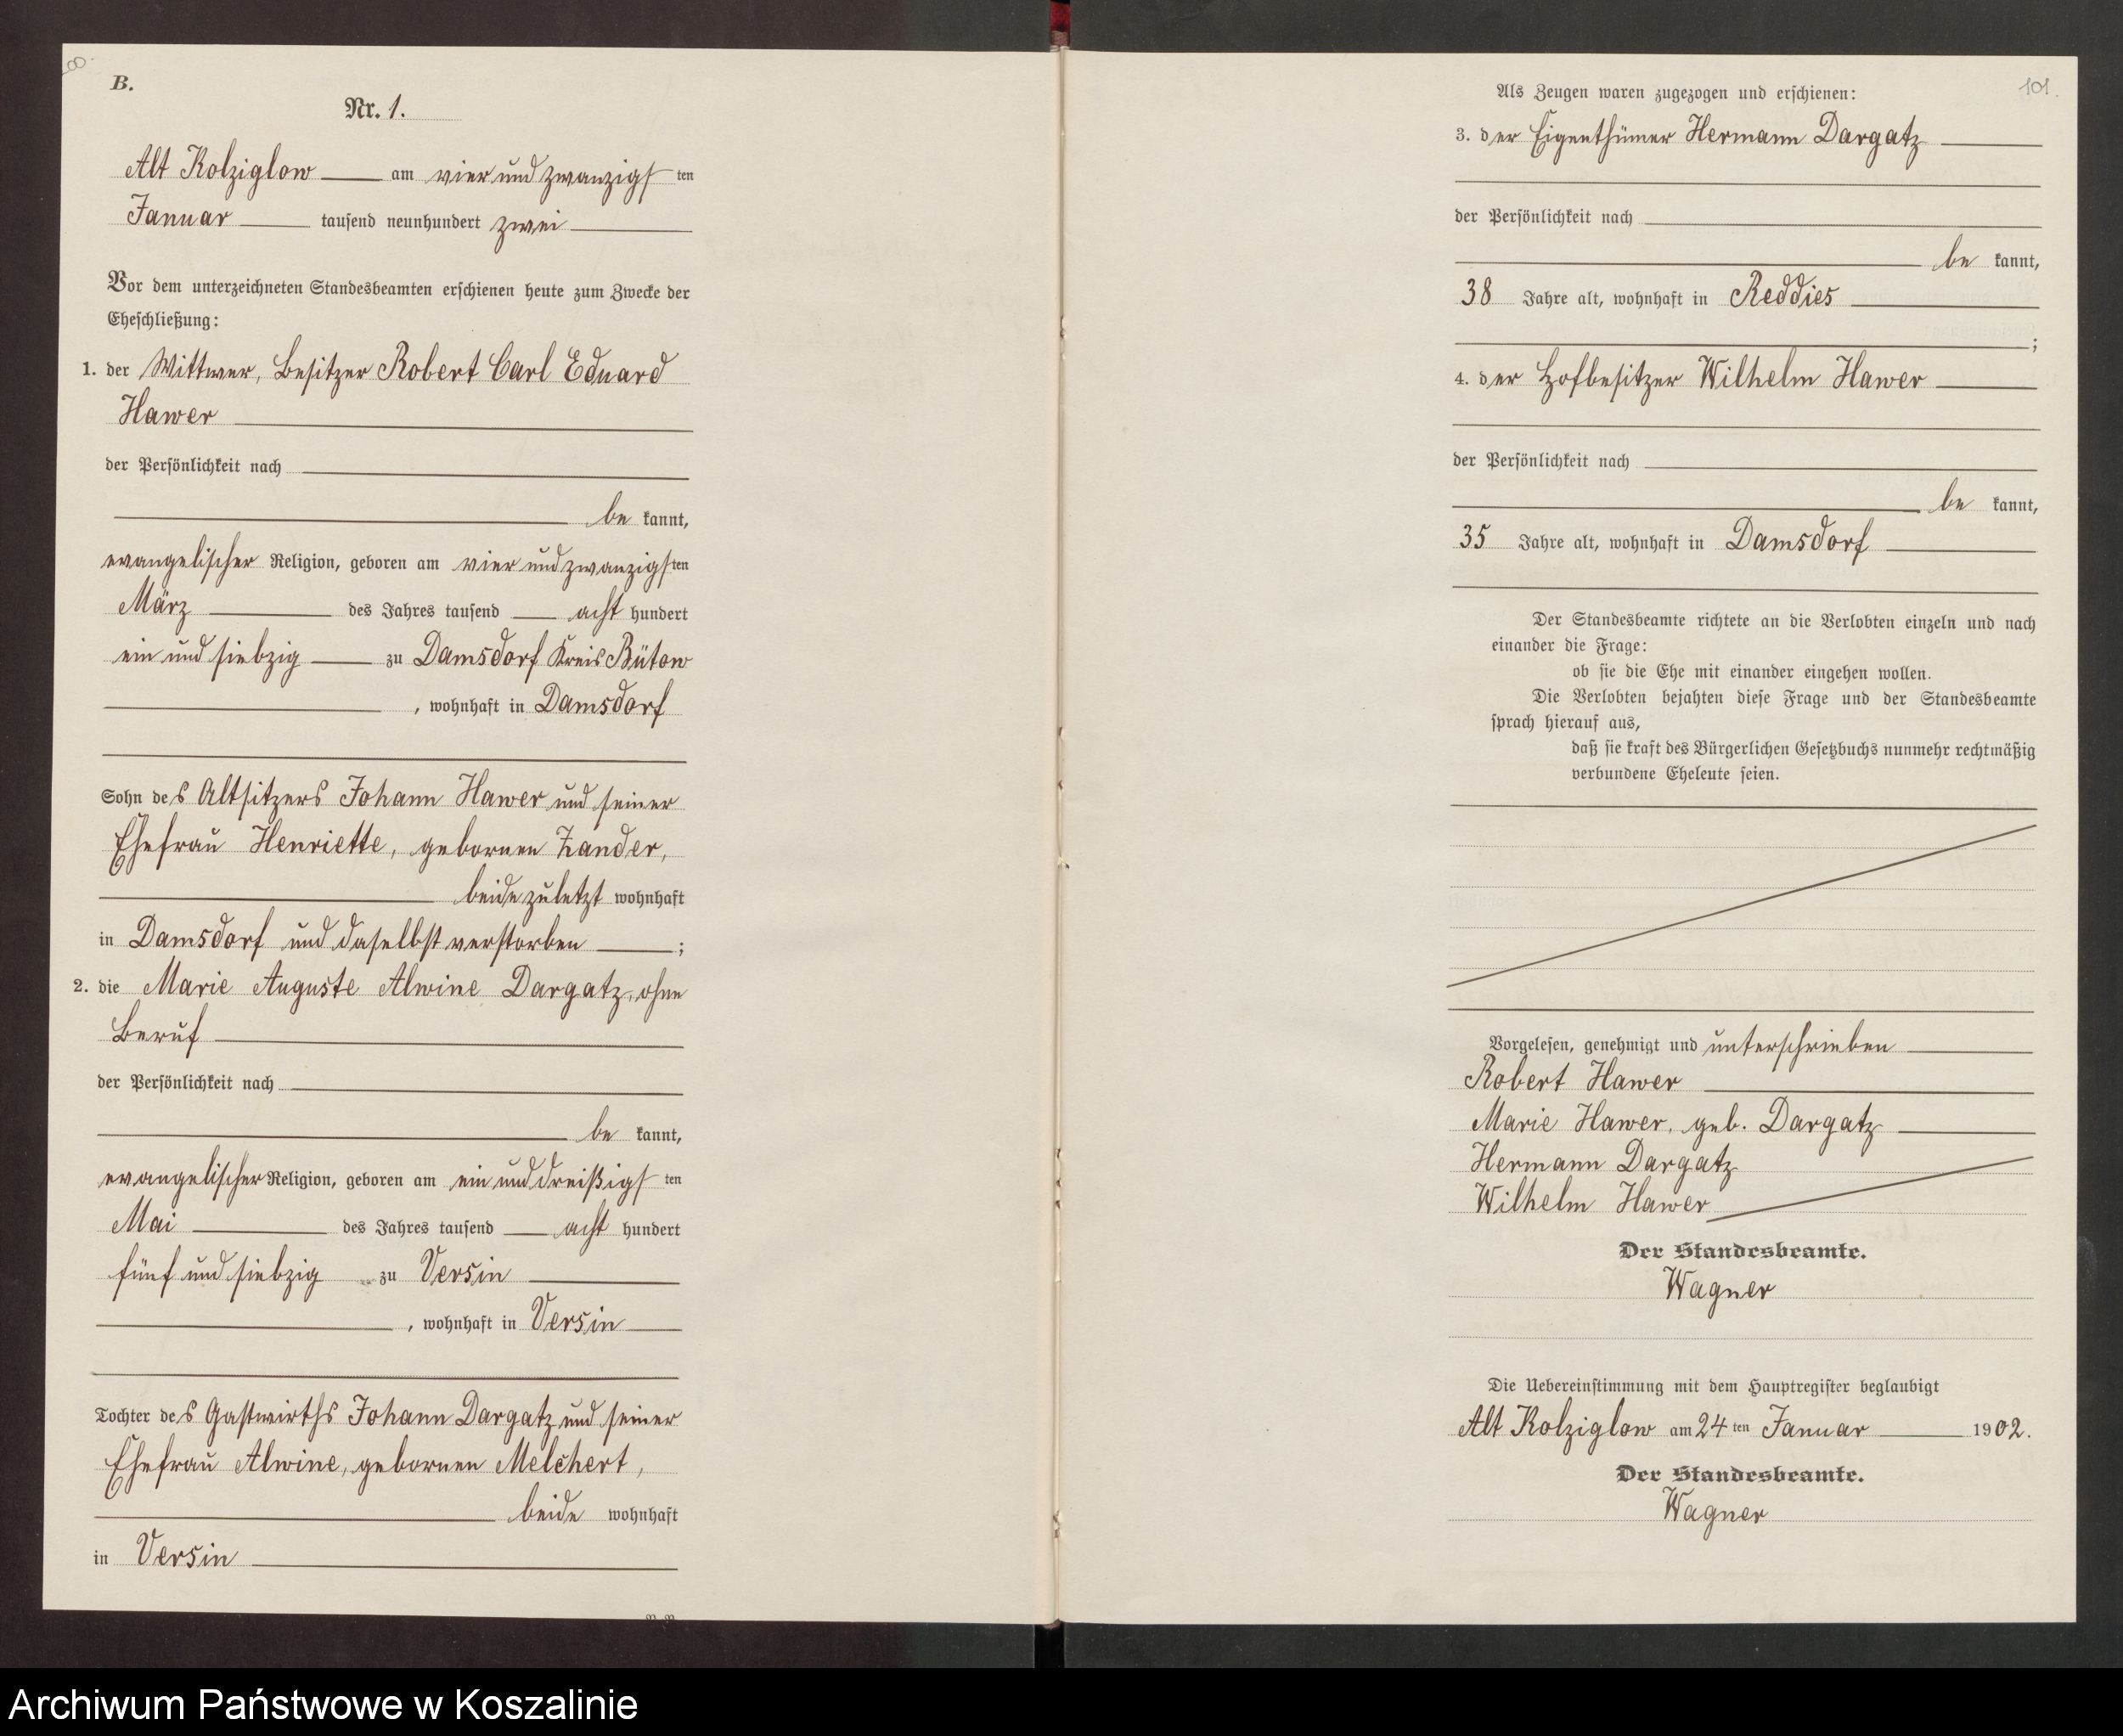 B.
Nr. 1.
Alt Kolziglow am vier und zwanzigsten
Januar tausend neunhundert zwei
Vor dem unterzeichneten Standesbeamten erschienen heute zum Zwecke der
Eheschließung:
1. der Wittwer, Besitzer Robert Carl Eduard
Hawer
der Persönlichkeit nach
be kannt,
evangelischer Religion, geboren am vier und zwanzigsten
März des Jahres tausend acht hundert
ein und siebzig zu Damsdorf Kreis Bütow
, wohnhaft in Damsdorf
Sohn des Altsitzers Johann Hawer und seiner
Ehefrau Henriette, gebornen Zander,
beide zuletzt wohnhaft
in Damsdorf und daselbst verstorben ;
2. die Marie Auguste Alwine Dargatz, ohne
Beruf
der Persönlichkeit nach
be kannt,
evangelischer Religion, geboren am ein und dreißigsten
Mai des Jahres tausend acht hundert
fünf und siebzig zu Versin
, wohnhaft in Versin
Tochter des Gastwirths Johann Dargatz und seiner
Ehefrau Alwine, gebornen Melchert,
beide wohnhaft
in Versin
101.
Als Zeugen waren zugezogen und erschienen:
3. der Eigenthümer Hermann Dargatz
der Persönlichkeit nach
be kannt,
38 Jahre alt, wohnhaft in Reddies
;
4. der Hofbesitzer Wilhelm Hawer
der Persönlichkeit nach
be kannt,
35 Jahre alt, wohnhaft in Damsdorf
Der Standesbeamte richtete an die Verlobten einzeln und nach
einander die Frage:
ob sie die Ehe mit einander eingehen wollen.
Die Verlobten bejahten diese Frage und der Standesbeamte
sprach hierauf aus,
daß sie kraft des Bürgerlichen Gesetzbuchs nunmehr rechtmäßig
verbundene Eheleute seien.
Vorgelesen, genehmigt und unterschrieben
Robert Hawer
Marie Hawer, geb. Dargatz
Hermann Dargatz
Wilhelm Hawer
Der Standesbeamte.
Wagner
Die Uebereinstimmung mit dem Hauptregister beglaubigt
Alt Kolziglow am 24 ten Januar 1902.
Der Standesbeamte.
Wagner
Archiwum Państwowe w Koszalinie